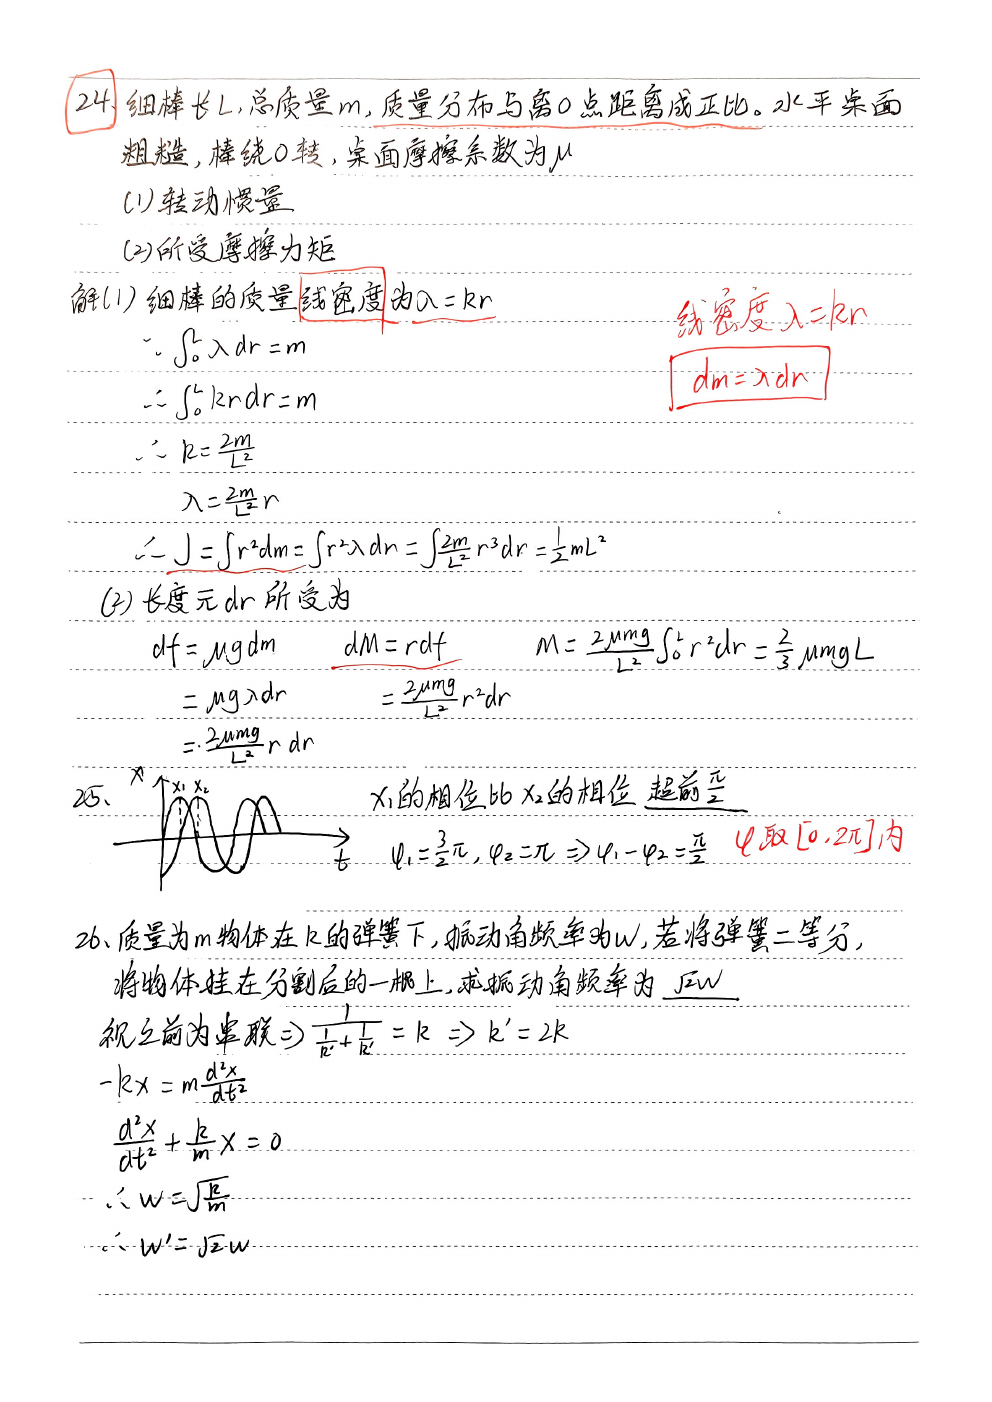 24、细棒长L,总质量m,质量分布与离O点距离成正比。水平桌面
粗糙,棒绕O转,桌面摩擦系数为μ
(1)转动惯量
(2)所受摩擦力矩
解(1)细棒的质量线密度为λ=kr
线密度λ=kr
∵∫₀ᴸλdr=m
dm=λdr
∴∫₀ᴸkrdr=m
∴k=2m/L²
λ=2m/L² r
∴J=∫r²dm=∫r²λdr=∫2m/L² r³dr=1/2 mL²
(2)长度元dr所受为
df=μgdm dM=rdf M=2μmg/L² ∫₀ᴸr²dr=2/3 μmgL
=μgλdr =2μmg/L² r²dr
=2μmg/L² r dr
25、 x x₁ x₂ t x₁的相位比x₂的相位超前π/2
φ₁=3/2π,φ₂=π⇒φ₁-φ₂=π/2 φ取[0,2π]内
26、质量为m物体在k的弹簧下,振动角频率为w,若将弹簧二等分,
将物体挂在分割后的一根上,求振动角频率为√2w
视之前为串联⇒1/(1/k'+1/k')=k⇒k'=2k
-kx=m d²x/dt²
d²x/dt²+k/m x=0
∴w=√(k/m)
∴w'=√2w